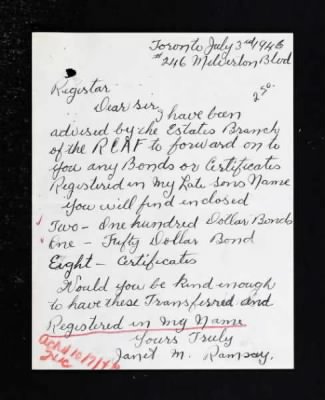 Toronto July 3rd 1946
# 246 Milverton Blvd
2 50.
Registar
Dear Sir,
I have been
advised by the Estates Branch
of the RCAF to forward on to
you any Bonds or Certificates
Registered in my Late sons Name
You will find inclosed
Two - One hundred Dollar Bonds
One - Fifty Dollar Bond
Eight - Certificates
Would you be kind enough
to have these Transferred and
Registered in my Name
Yours Truly
Janet M. Ramsay.
Ack'd 10/7/46